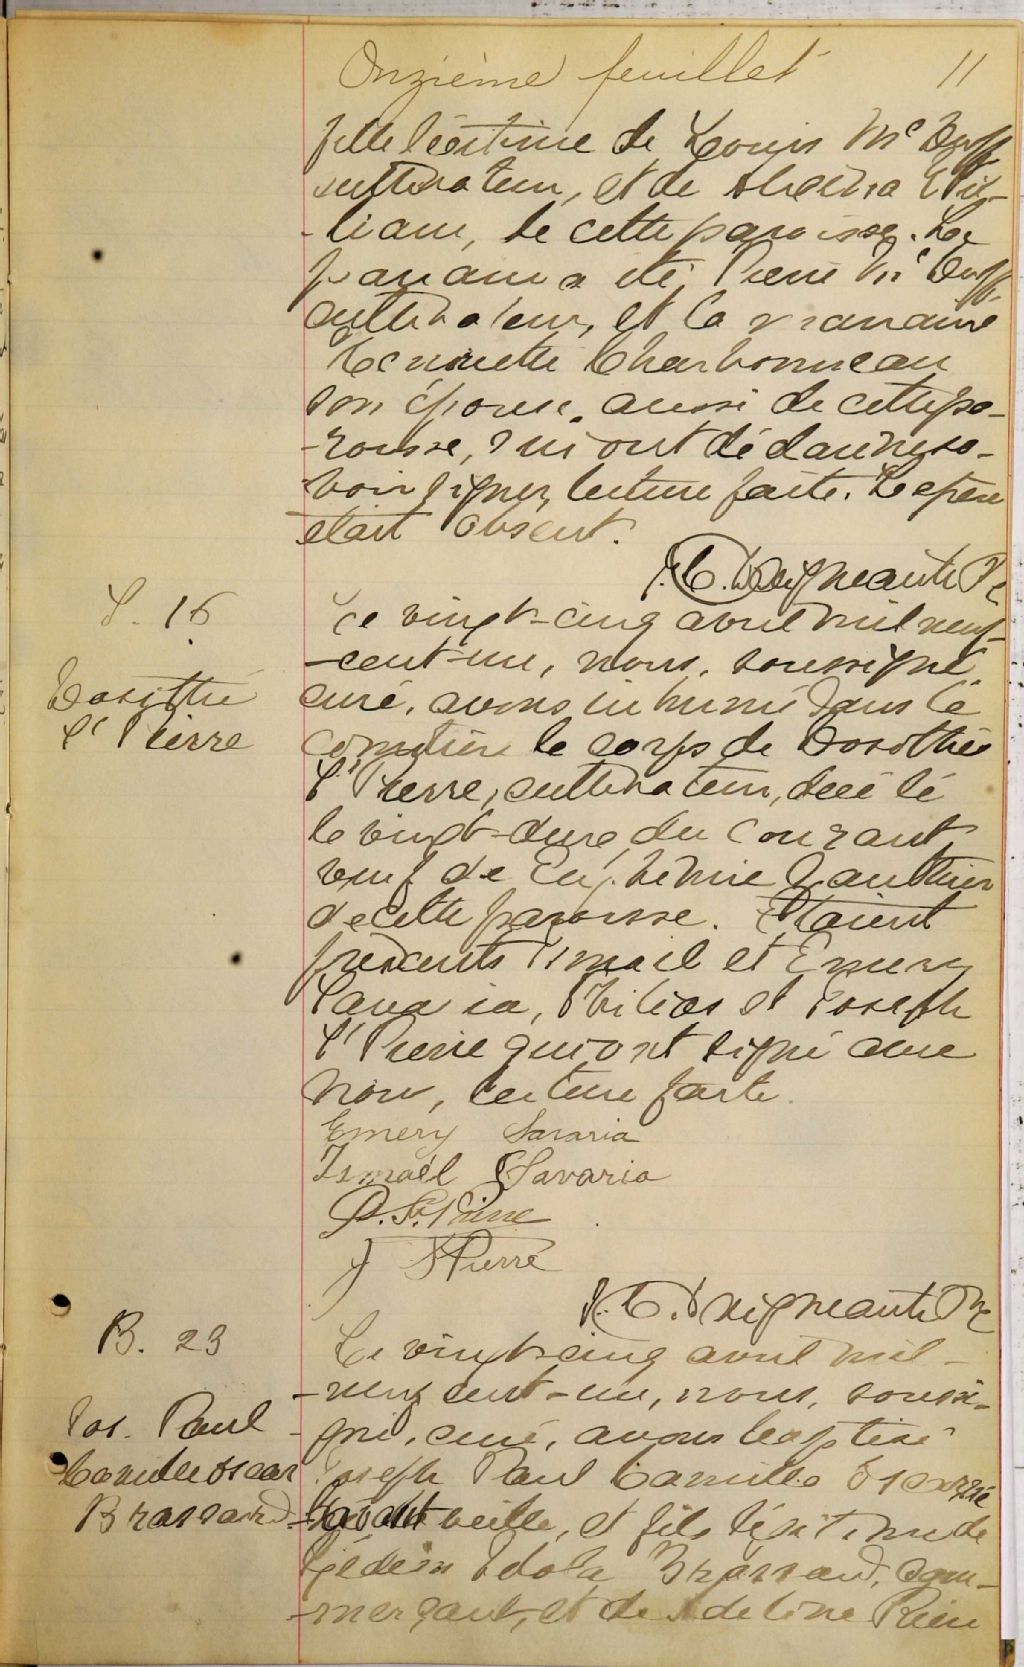 Onzième feuillet 11
fille légitime de Louis McDuff
cultivateur, et de
-liam, de cette paroisse. Le
parrain a été Pierre McDuff
cultivateur, et la marraine
Henriette Charbonneau
son épouse, aussi de cette pa-
-roisse, qui ont déclaré ne sa-
voir signer, lecture faite. Le père
était absent.
Daigneault Ptre
S. 16
Dosithé
St Pierre
Le vingt-cinq avril mil neuf-
-cent-un, nous, soussigné
curé, avons inhumé dans le
cimetière le corps de Dosithée
St Pierre, cultivateur, décédé
le vingt-deux du courant
veuf de Euphémie Gauthier
de cette paroisse. Etaient
présents Ismaël et Emery
Savaria, et Joseph
St Pierre qui ont signé avec
nous, lecture faite.
Emery Savaria
Ismaël Savaria
St. Pierre
J St Pierre
Daigneault Ptre
B. 23
Jos. Paul
Camille Oscar
Brassard
Le vingt-cinq avril mil-
-neuf cent-un, nous, soussi-
gné, curé, avons baptisé
Joseph Paul Camille Oscar né
l'avant veille, et fils légitime de
Gédéon Brassard, com-
-merçant, et de Adeline